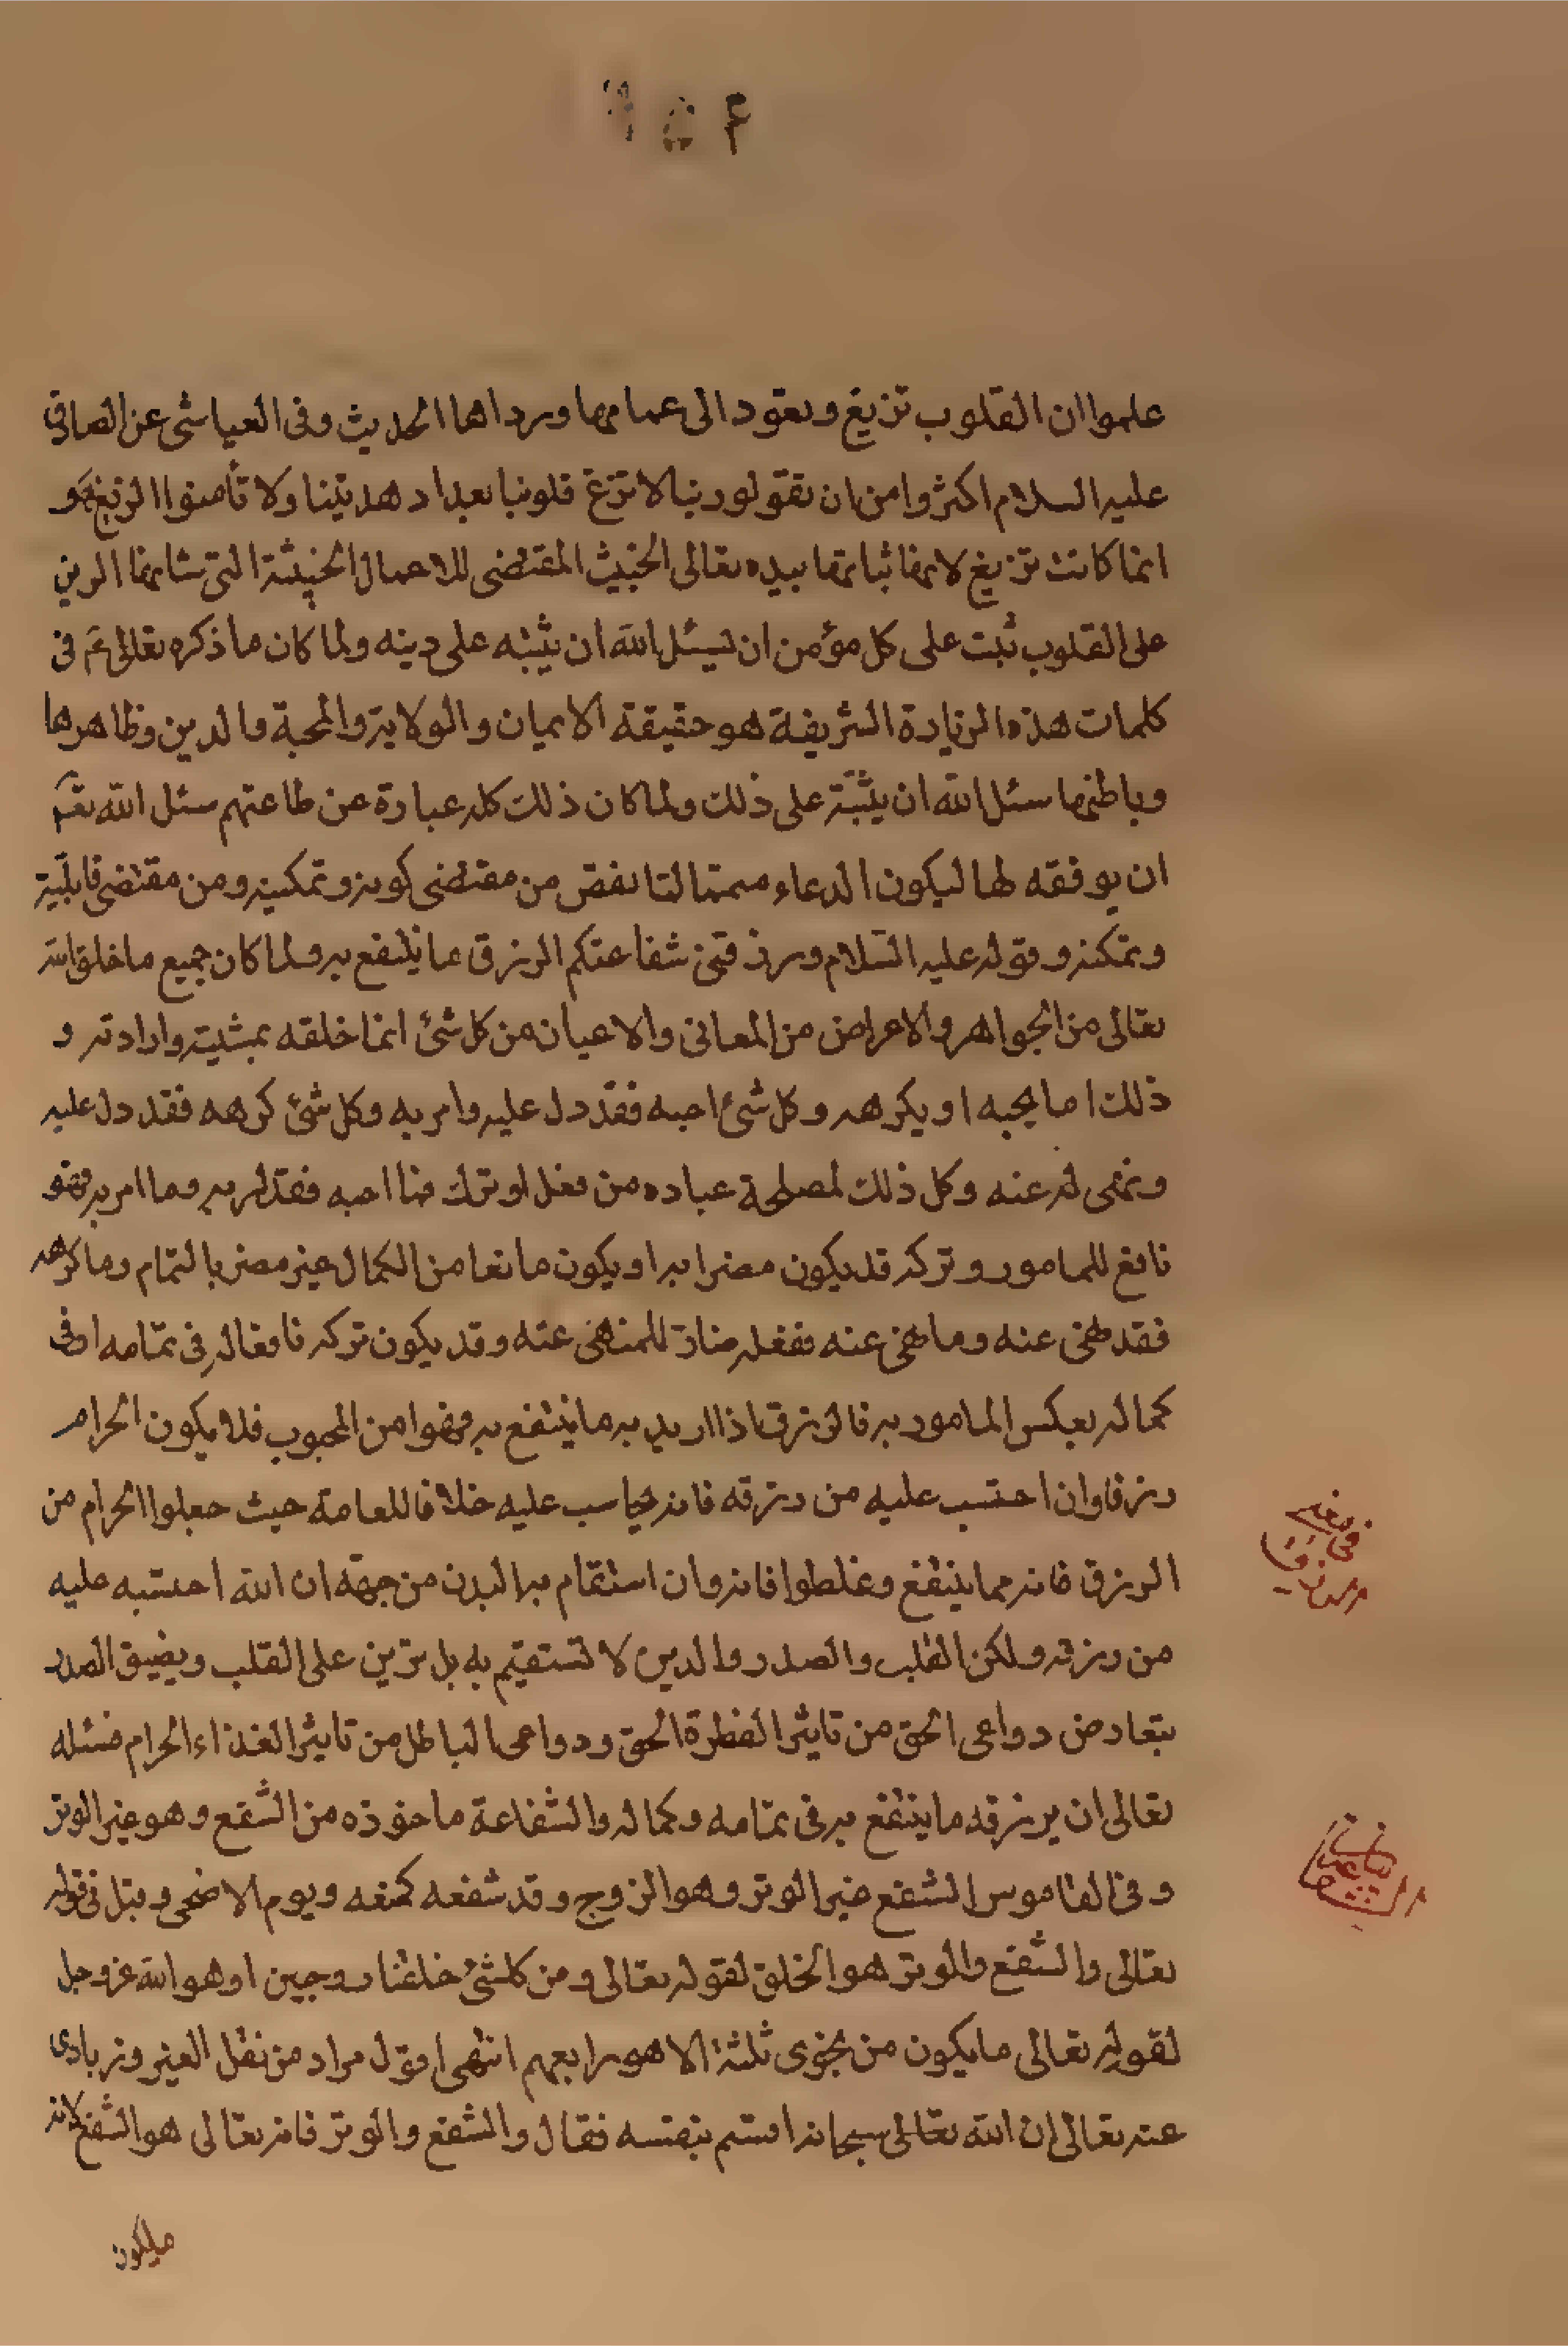 علموا ان القلوب تزيغ وتعود الى عماها ورداها الحديث وفى العياشى عن الصادق
عليه السلام اكثروا من ان تقولو ربنا لا تزغ قلوبنا بعد اذ هديتنا ولا تأمنوا الزيغ و
انما كانت تزيغ لانها ثباتها بيده تعالى الخبيث المقتضى للاعمال الخبيثة التى شانها الرين
على القلوب ثبت على كل مؤمن ان يسئل الله ان يثبته على دينه ولما كان ما ذكره تعالى فى
كلمات هذه الزيادة الشريفة هو حقيقة الايمان والولاية والمحبة والدين وظاهرها
وباطنها سئل الله ان يثبته على ذلك ولما كان ذلك كله عبارة عن طاعتهم سئل الله
ان يوفقه لها ليكون الدعاء متمما لتا نقص من مقتضى كونه وتمكينه ومن مقتضى قابليته
وتمكنه وقوله عليه السلام ورزقنى شفاعتكم الرزق ما ينتفع به ولما كان جميع ما خلق الله
تعالى من الجواهر والاعراض من المعانى والاعيان من كل شئ انما خلقه بمشيته وارادته و
ذلك اما يحبه او يكرهه وكل شئ احبه فقد دل عليه وامر به وكل شئ كرهه فقد دل عليه
ونهى له عنه وكل ذلك لمصلحة عباده من فعل او ترك فما احبه فقد امر به وما امر به فهو
نافع للمامور وتركه قد يكون مضرا به او يكون مانعا من الكمال غير مضر بالتمام وما كرهه
فقد نهى عنه وما نهى عنه ففعله ضار للمنهى عنه وقد يكون تركه نافعا له فى تمامه او فى
كماله بعكس المامور به فالرزق اذا اريد به ما ينتفع به فهوا من المحبوب فلا يكون الحرام
رزقا وان احتسب عليه من رزقه فانه يحاسب عليه خلافا للعامة حيث جعلوا الحرام من
الرزق فانه مما ينتفع وغلطوا فانه وان استقام به البدن من جهة ان الله احتسبه عليه
من رزقه ولكن القلب والصدر والدين لا تستقيم به بل ترين على القلب ويضيق الصدر
بتعارض دواعى الحق من تاثير الفطرة الحق ودواعى الباطل من تاثير الغذاء الحرام فسئله
تعالى ان يرزقه ما ينتفع به فى تمامه وكماله والشفاعة ماخوذه من الشفع وهو غير الوتر
وفى القاموس الشفع غير الوتر وهو الزوج وقد شفعه كمنعه ويوم الاضحى وقيل فى قوله
تعالى والشفع والوتر هو الخلق لقوله تعالى ومن كل شئ خلقنا زوجين او هو الله عز وجل
لقوله تعالى ما يكون من نجوى ثلثة الا هو رابعهم انتهى اقول مراد من نقل الغير
عنه تعالى ان الله تعالى سبحانه اقسم بنفسه فقال والشفع والوتر فانه تعالى هو الشفع لانه
فى معنى
الرزق
بيان
الشفاعة